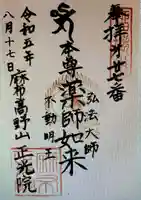 奉拝 廿七番
本尊薬師如来
弘法大師
不動明王
令和五年
八月十七日
麻布高野山 正光院